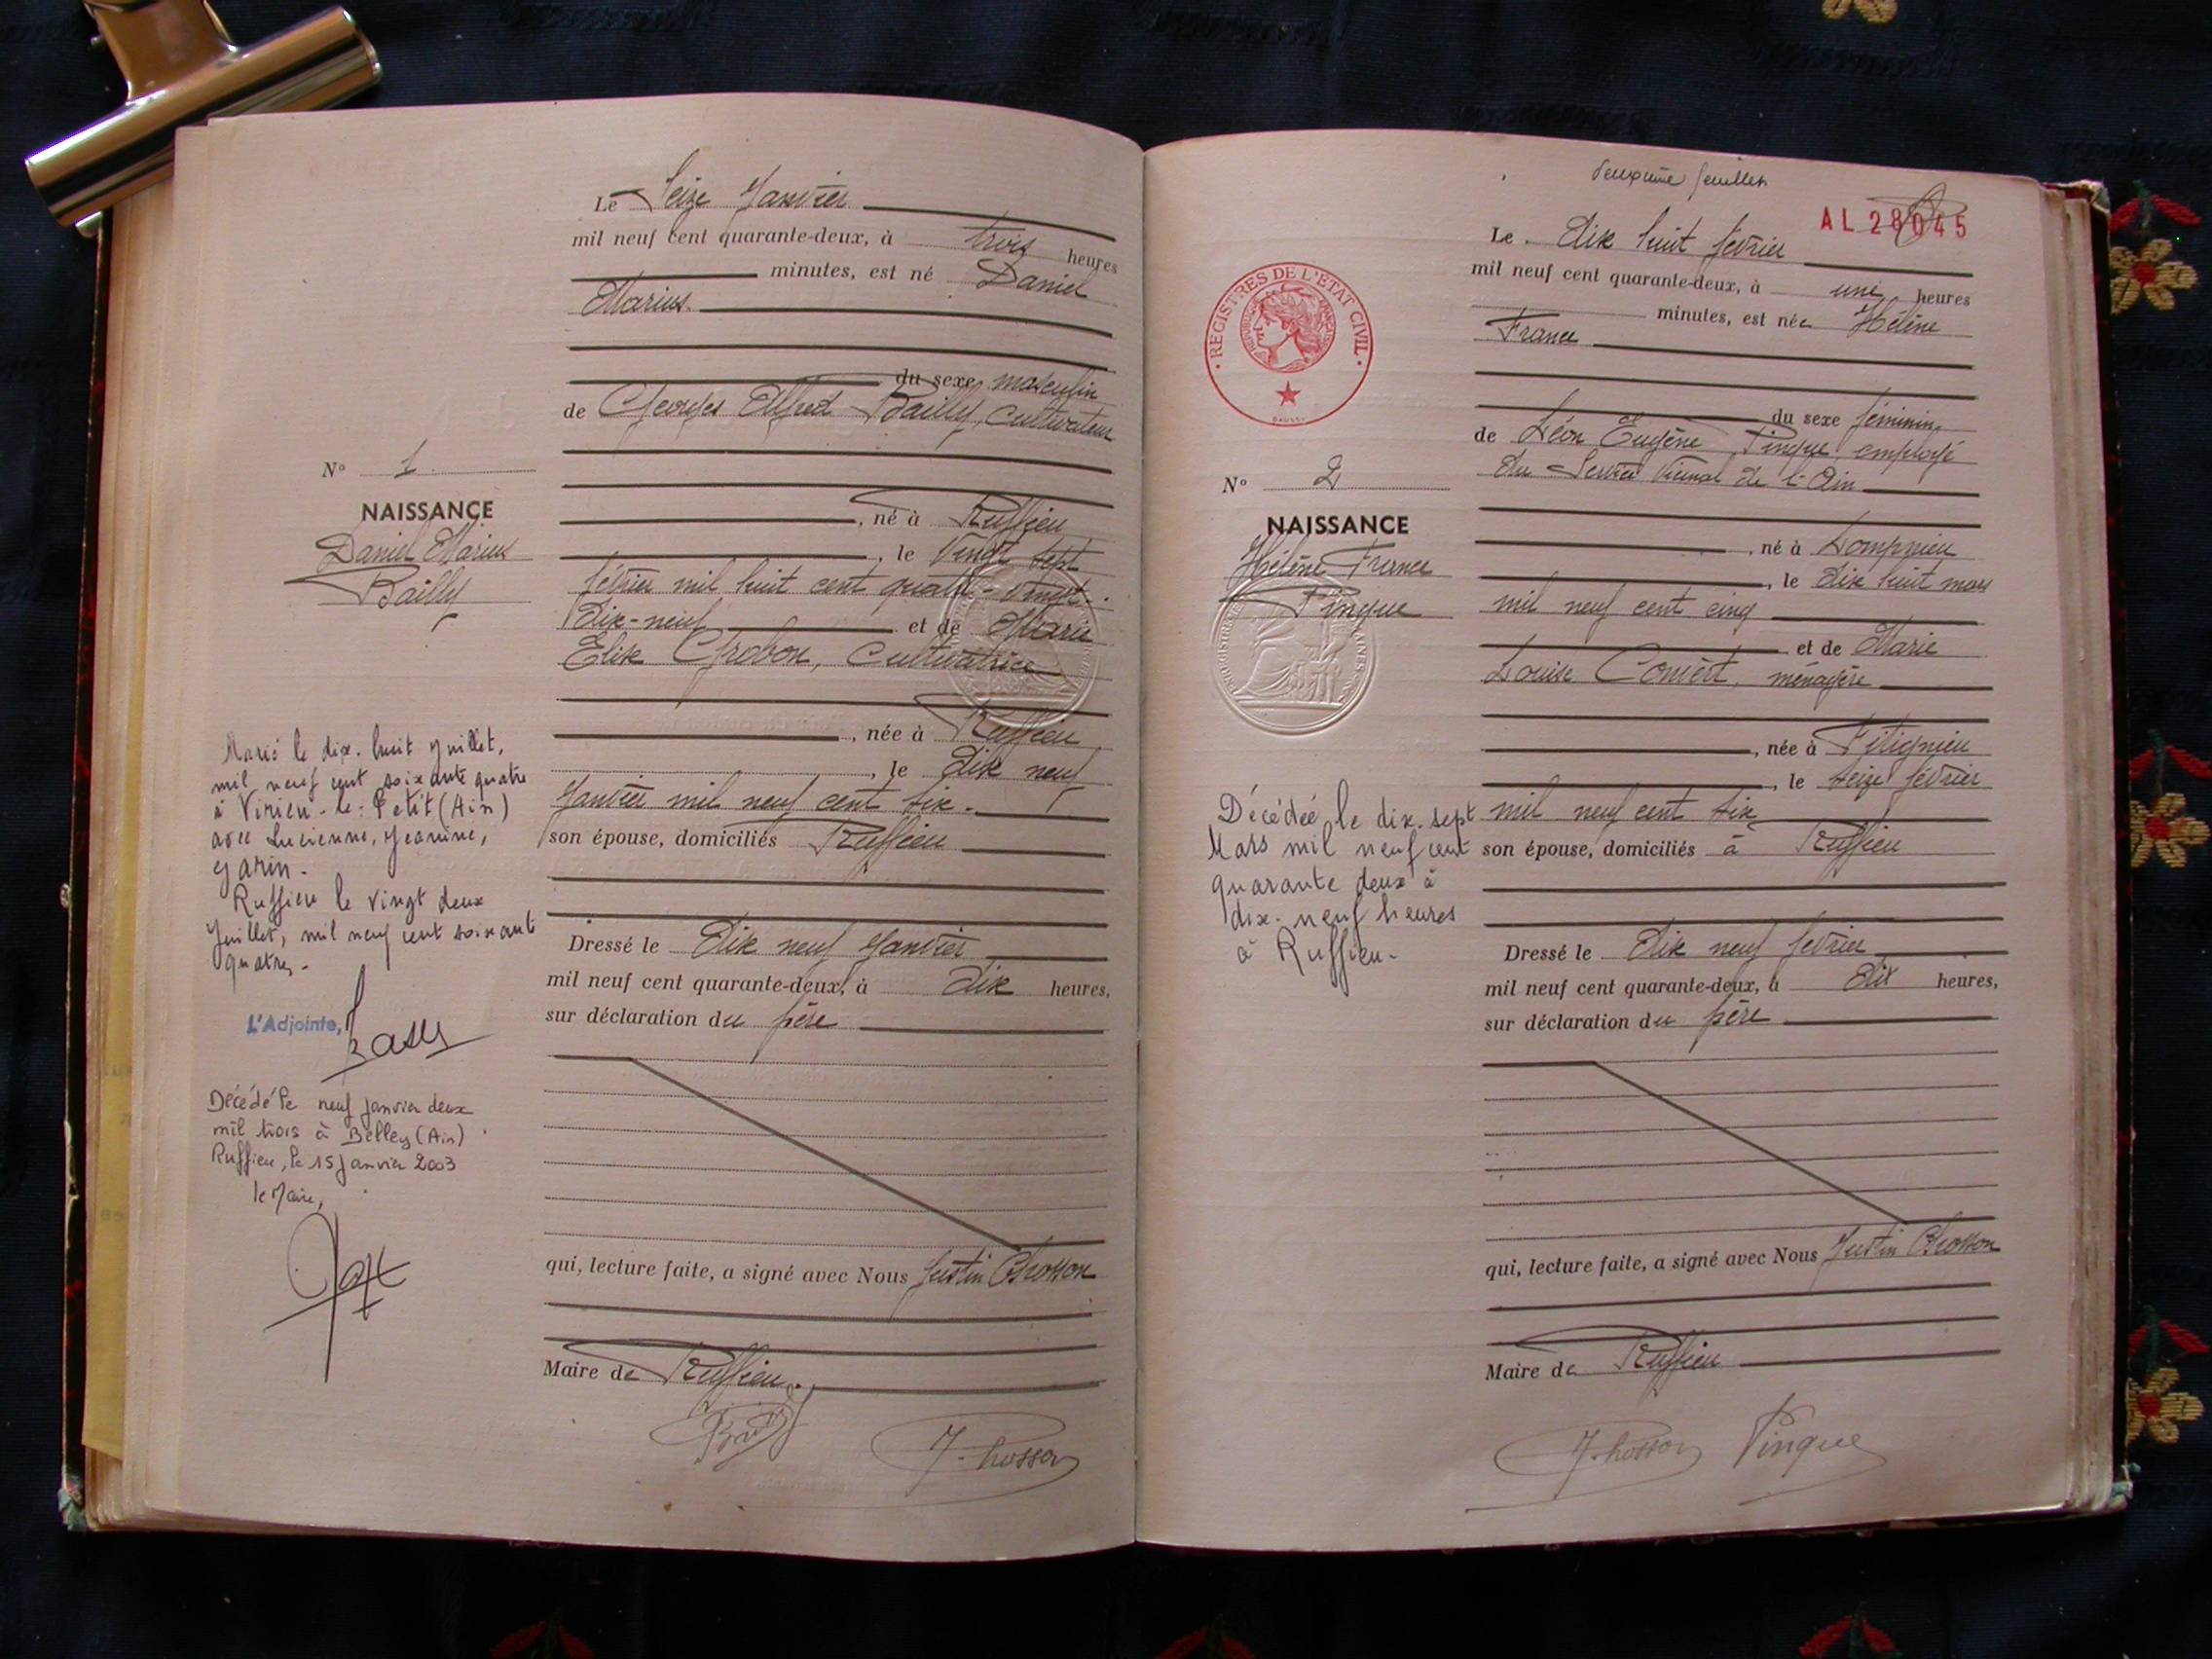 Le Seize Janvier
mil neuf cent quarante-deux, à trois heures
minutes, est né Daniel
Marius.
du sexe masculin
de Georges Alfred Bailly, Cultivateur
N° 1
NAISSANCE
Daniel Marius
Bailly
, né à Ruffieu
, le Vingt sept
février mil huit cent quatre-vingt-
dix-neuf et de Marie
Elise Grobon, Cultivatrice
, née à Ruffieu
, le dix neuf
Janvier mil neuf cent six.
son épouse, domiciliés Ruffieu
Dressé le dix neuf Janvier
mil neuf cent quarante-deux, à dix heures,
sur déclaration du père
qui, lecture faite, a signé avec Nous Justin Brosson
Maire de Ruffieu.
Marié le dix-huit Juillet,
mil neuf cent soixante quatre
à Virieu-le-Petit (Ain)
avec Lucienne, Jeanine,
Garin-
Ruffieu le vingt deux
Juillet, mil neuf cent soixante
quatre-
L'Adjointe,
Décédé le neuf janvier deux
mil trois à Belley (Ain)
Ruffieu, le 15 Janvier 2003
le Maire,
deuxième feuillet
AL 28045
REGISTRES DE L'ETAT CIVIL
Le dix huit février
mil neuf cent quarante-deux, à une heures
minutes, est née Hélène
France
du sexe féminin
de Léon Eugène Pingue, employé
du Service Vicinal de l'Ain
N° 2
NAISSANCE
Hélène France
Pingue
, né à Lompnieu
, le dix huit mars
mil neuf cent cinq
et de Marie
Louise ménagère
, née à Fitignieu
, le seize février
mil neuf cent six
son épouse, domiciliés à Ruffieu
Décédée le dix-sept
Mars mil neuf cent
quarante deux à
dix-neuf heures
à Ruffieu-
Dressé le dix neuf février
mil neuf cent quarante-deux, à dix heures,
sur déclaration du père
qui, lecture faite, a signé avec Nous Justin Brosson
Maire de Ruffieu
Pingue